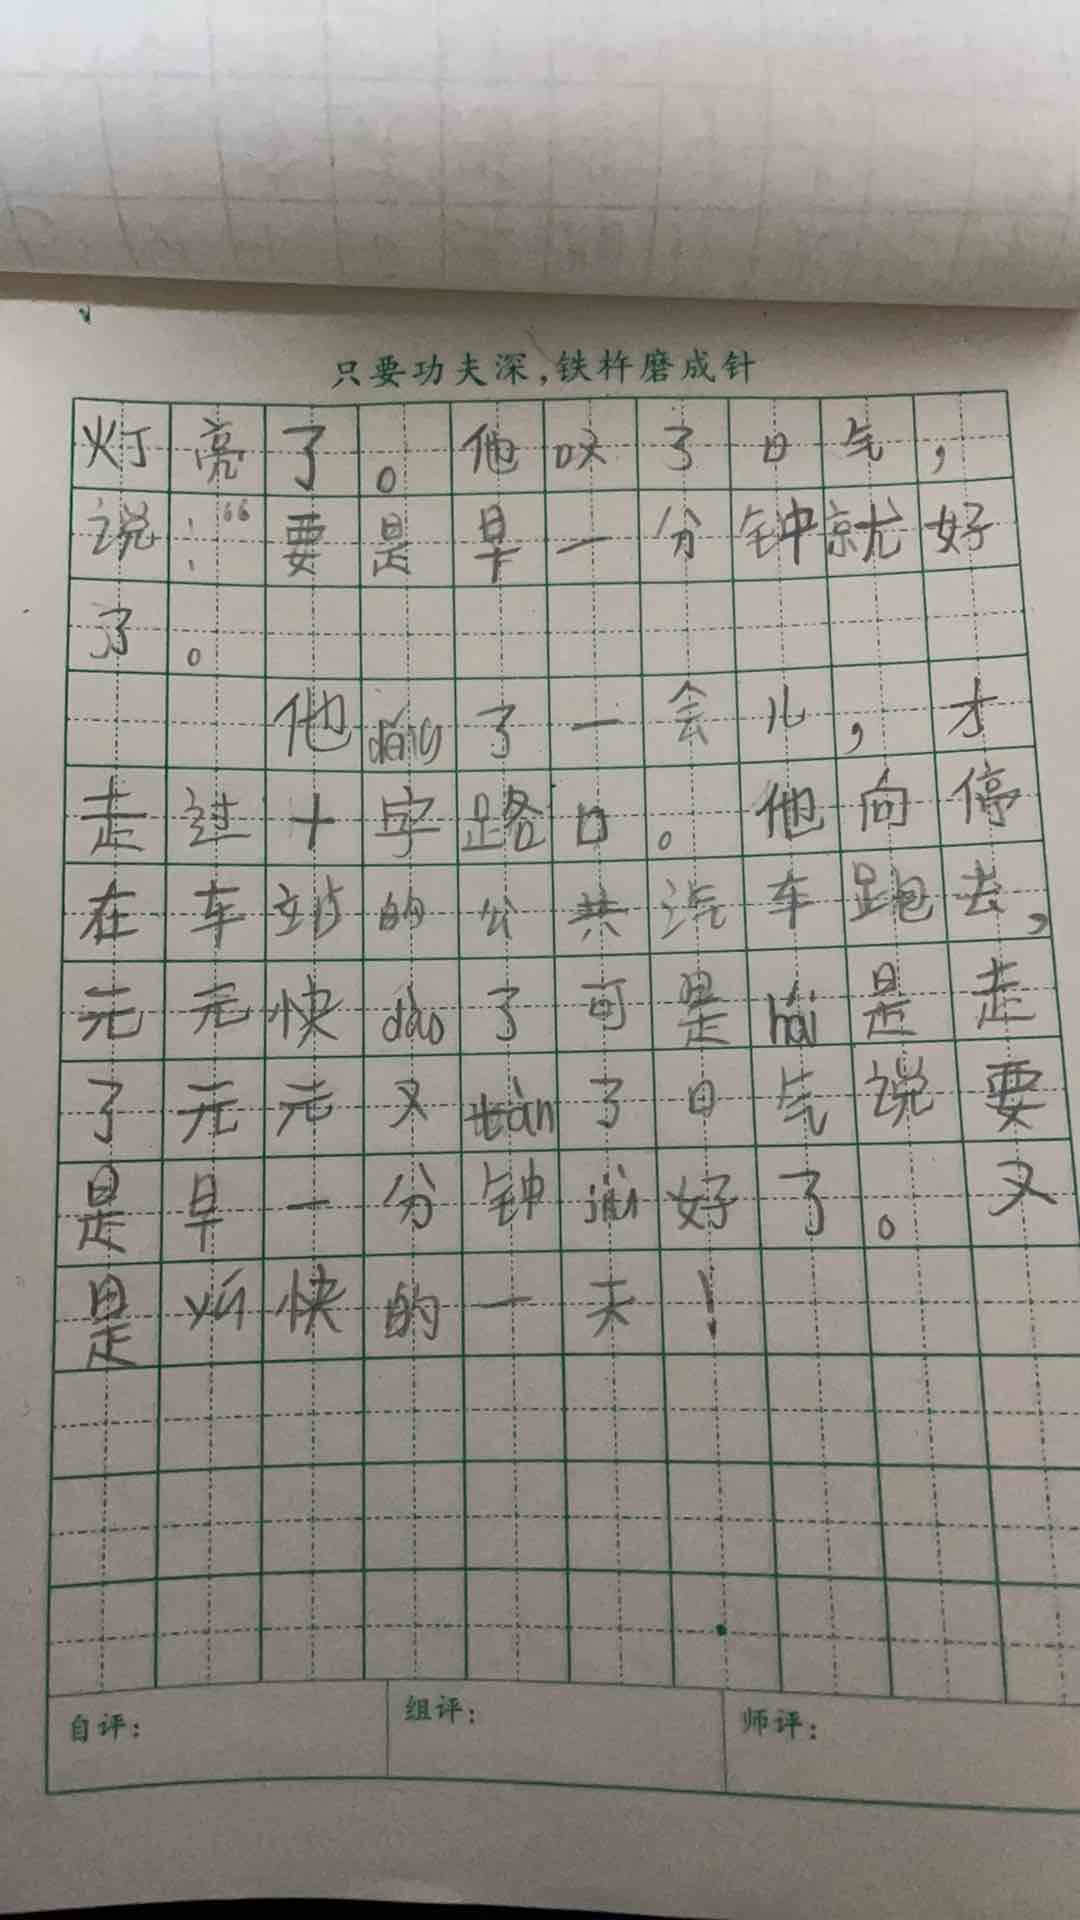 只要功夫深,铁杵磨成针
灯亮了。他叹了口气,
说:“要是早一分钟就好
了。
他děng了一会儿,才
走过十字路口。他向停
在车站的公共汽车跑去,
元元快dào了可是hái是走
了元元又tàn了口气说要
是早一分钟jiù好了。又
是yú快的一天!
自评: 组评: 师评: